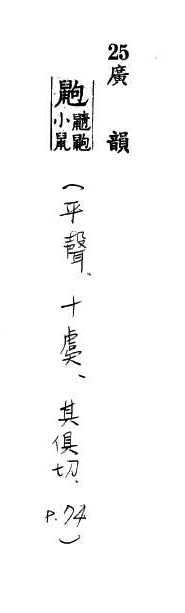 25 廣韻
鼩 鼱鼩小鼠
（平聲、十虞、其俱切、P.74）